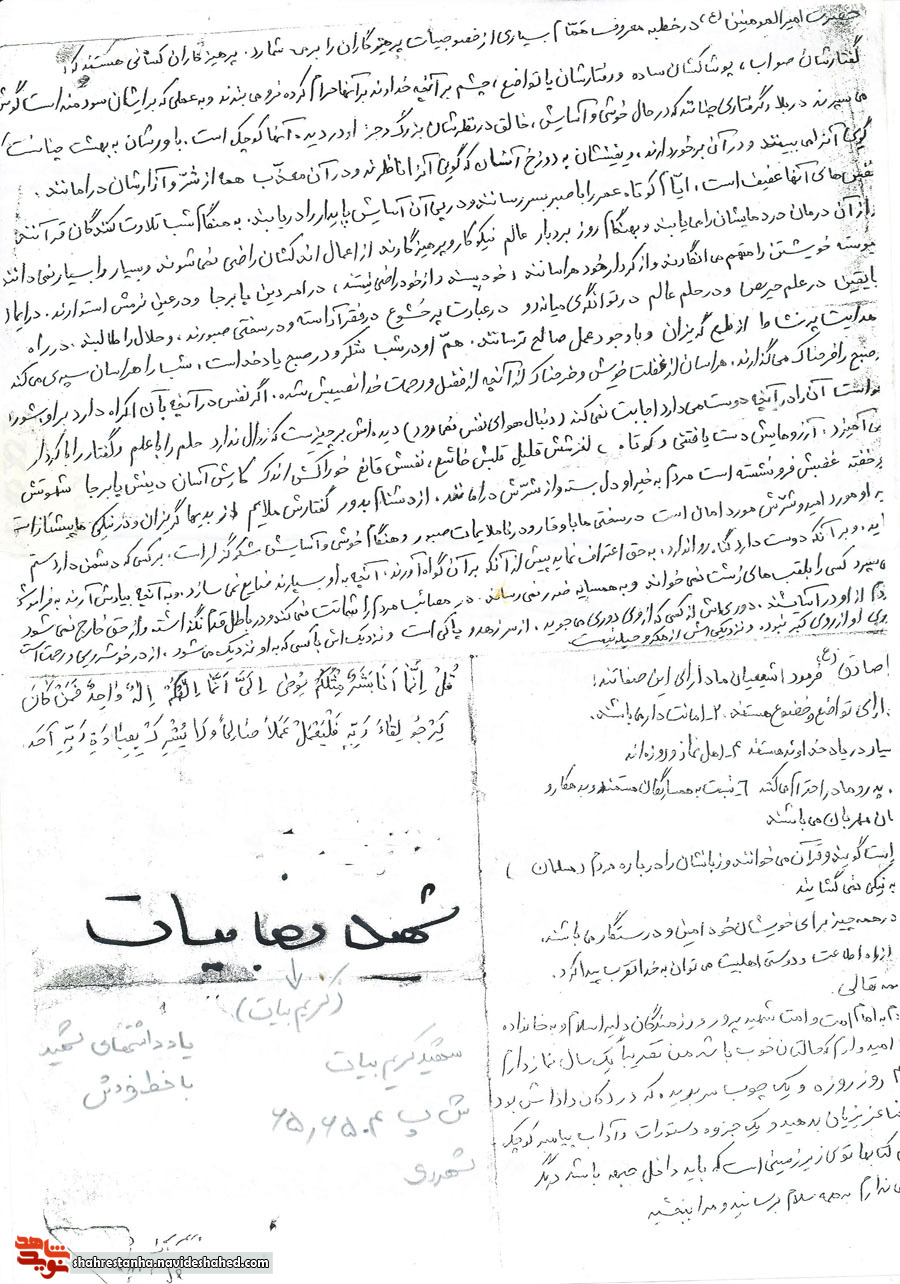 حضرت امیرالمومنین (ع) در خطبه معروف همّام بسیاری از خصوصیات پرهیزگاران را برمی شمارد. پرهیزگاران کسانی هستند که:
گفتارشان صواب، پوشاکشان ساده و رفتارشان با تواضع، چشم بر آنچه خداوند بر آنها حرام کرده فرو می بندند و به علمی که برایشان سودمند است گوش
می سپرند در بلا و گرفتاری چنانند که در حال خوشی و آسایش، خالق در نظرشان بزرگ و جز او در دیده آنها کوچک است. باورشان به بهشت چنانست
گویی آنرا می بینند و در آن برخوردارند، و یقینشان به دوزخ آنسان که گویی آنرا ناظرند و در آن معذّب همه از شرّ و آزارشان در امانند.
نفس های آنها عفیف است، ایّام کوتاه عمر را با صبر بسر رسانند و در پی آن آسایش پایدار را دریابند. به هنگام شب تلاوت کنندگان قرآنند
از آن درمان دردهایشان را می یابند و بهنگام روز بردبار عالم نیکوکار و پرهیزگارند از اعمال اندکشان راضی نمی شوند و بسیار را بسیار نمی دانند
پیوسته خویشتن را متهم می انگارند و از کردار خود هراسانند، خودپسند و از خود راضی نیستند، در امر دین پابرجا و در عین نرمش استوارند. در ایمان
بایقین در علم حریص و در حلم عالم در توانگری میانه رو در عبادت پر خشوع در فقر آراسته و در سختی صبورند، و حلال را طالبند. در راه
هدایت پر نشاط از طمع گریزان و با وجود عمل صالح ترسانند. همّ او در شب شکر و در صبح یاد خداست، شب را هراسان سپری می کند
و صبح را فرحناک می گذارند. هراسان از غفلت خویش و فرحناک از آنچه از فضل و رحمت خدا نصیبش شده. اگر نفس در آنچه بآن اکراه دارد بر او بشورد
خواست آن را در آنچه دوست می دارد اجابت نمی کند (دنبال هوای نفس نمی رود) دیده اش بر چیزیست که زوال ندارد حلم را با علم و گفتار را با کردار
می آمیزد. آرزوهایش دست یافتنی و کوتاه، لغزشش قلیل قلبش خاشع، نفسش قانع خوراکش اندک کارش آسان دینش پابرجا شهوتش
خفته غضبش فرو نشسته است مردم به خیر او دل بسته و از شرّش در امانند. از دشنام بدور گفتارش ملایم از بدیها گریزان و در نیکی ها پیشتاز است
به او مورد امید و شرّش مورد امان است در سختی ها با وقار و در ناملایمات صبور و هنگام خوشی و آسایش شکر گزار است. بر کسی که دشمن دارد ستم
و بر آنکه دوست دارد گناه روا ندارد. به حق اعتراف نماید پیش از آنکه بر آن گواه آورند. آنچه به او سپارند ضایع نمی سازد. و به آنچه بیادش آرند به فراموشی
نمی سپرد کسی را بلقب های زشت نمی خواند و به همسایه ضرر نمی رساند. در مصائب مردم را شماتت نمی کند و در باطل قدم نگذاشته و از حق خارج نمی شود
مردم از او در آسایشند. دوری اش از کسی که از وی دوری می جوید. از سر زهد و پاکی است و نزدیک اش با کسی که به او نزدیک می شود. از در خوشرویی و رحمت است
دوری او از روی کبر نبوده و نزدیکی اش از مکر و حیله نیست
قُلْ اِنَّمٰا اَنَا بَشَرٌ مِثْلُکُمْ یُوحٰی اِلَیَّ اَنَّمٰا اِلٰهُکُمْ اِلٰهٌ وٰاحِدٌ فَمَنْ کٰانَ
یَرْجُو لِقٰاءَ رَبِّهِ فَلْیَعْمَلْ عَمَلاً صٰالِحاً وَلٰا یُشْرِکْ بِعِبٰادَةِ رَبِّهِ اَحَد
صادق (ع) فرمود: شیعیان ما دارای این صفاتند:
دارای تواضع و خضوع هستند. ۲- امانت دار می باشند.
بسیار در یاد خداوند هستند ۴- اهل نماز و روزه اند
پدر و مادر احترام می کنند ۶- نسبت به همسایگان مستمند و بدهکار و
مهربان می باشند
راستگویند و قرآن می خوانند و زبانشان را درباره مردم (مسلمان)
به نیکی نمی گشایند
در همه چیز برای خویشان خود امین و درستکار می باشند.
از راه اطاعت و دوستی اهلبیت می توان به خدا تقرب پیدا کرد.
بسمه تعالی.
به امام امت و امت شهید پرور و رزمندگان دلیر اسلام و به خانواده
امیدوارم که حالتان خوب باشد من تقریباً یک سال نماز دارم
روز روزه و یک چوب بریدیده که در دکان داداش بود
عزیزیان بدهید و یک جزوه دستورات و آداب پیامبر کوچک
کتابها توی زیر زمینی است که باید داخل جعبه باشد دیگر
ندارم به همه سلام برسانید و مرا ببخشید
شهید رضا بیات
(کریم بیات)
یادداشتهای شهید
با خط خودش
شهید کریم بیات
ش پ ۶۵,۶۵۰۴
شهرری
نوید شاهد
shahrestanha.navideshahed.com